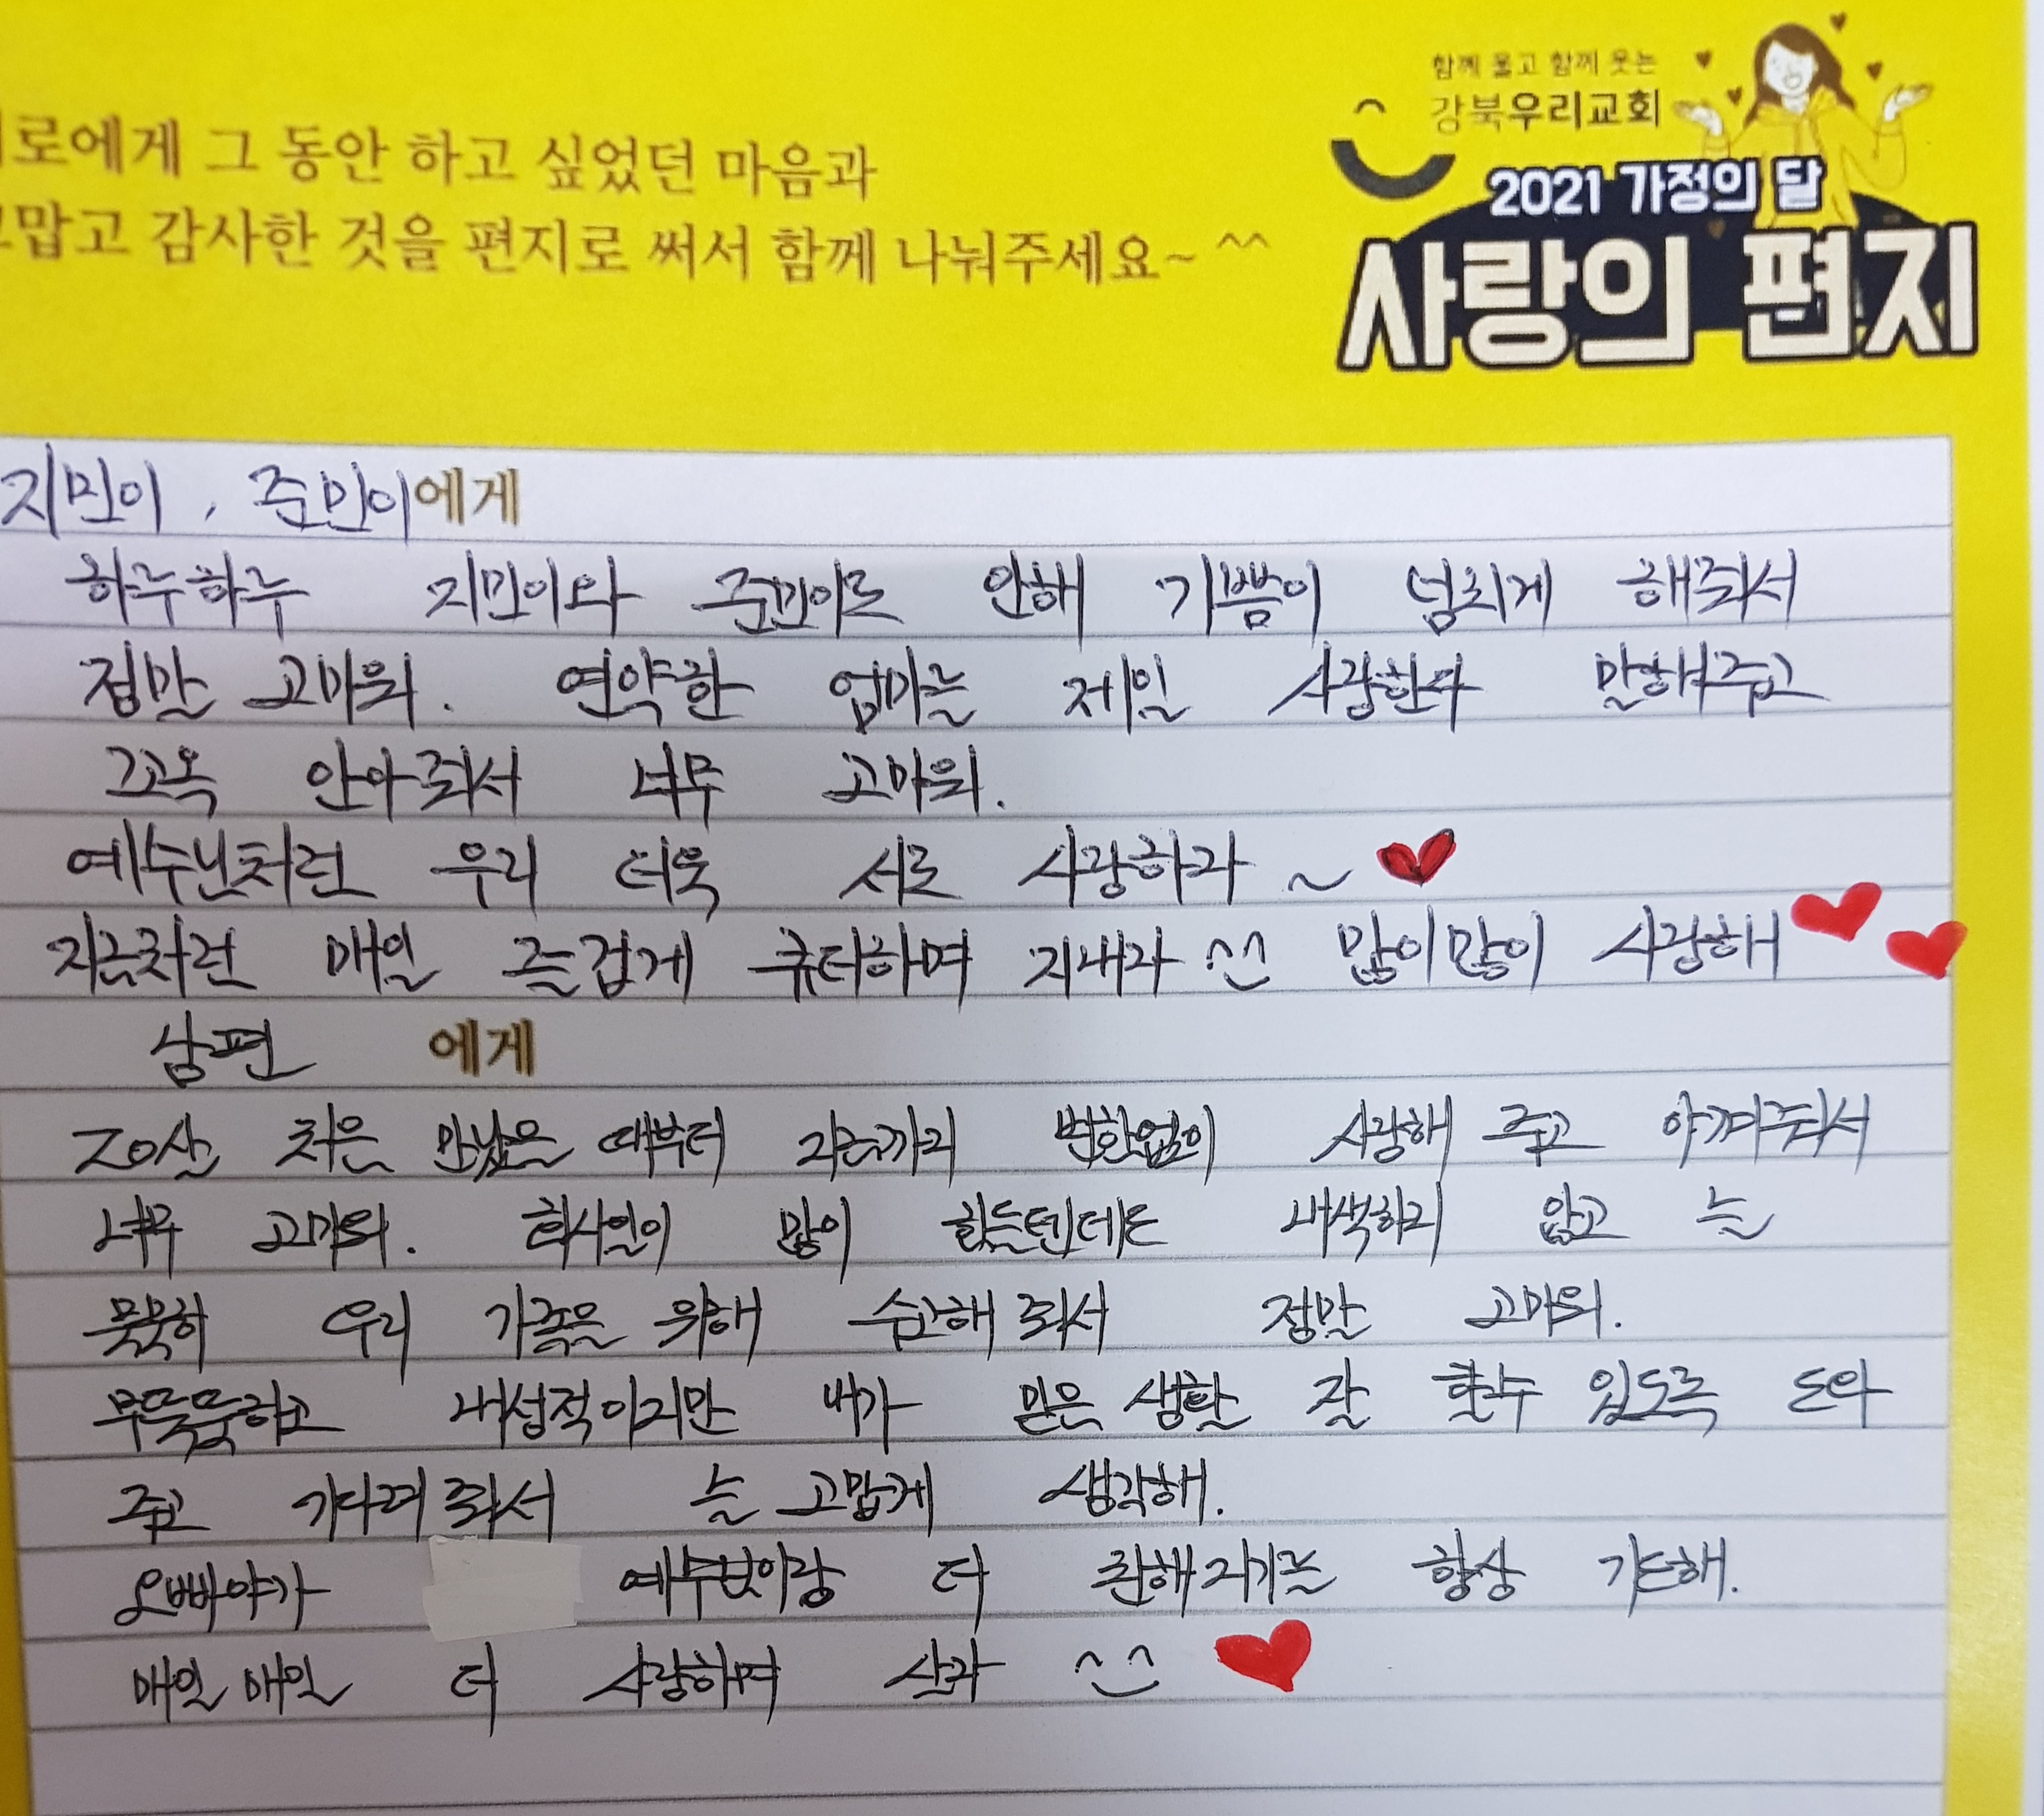 함께 울고 함께 웃는
강북우리교회
2021 가정의 달
사랑의 편지
로에게 그 동안 하고 싶었던 마음과
맙고 감사한 것을 편지로 써서 함께 나눠주세요~ ^^
지민이, 준민이에게
하루하루 지민이와 준민이로 인해 기쁨이 넘치게 해줘서
정말 고마워. 연약한 엄마를 제일 사랑한다 말해주고
꼬옥 안아줘서 너무 고마워.
예수님처럼 우리 더욱 서로 사랑하자~
지금처럼 매일 즐겁게 큐티하며 지내자 ^^ 많이많이 사랑해
남편 에게
20살 처음 만났을 때부터 지금까지 변함없이 사랑해 주고 아껴줘서
너무 고마워. 회사일이 많이 힘들텐데도 내색하지 않고 늘
묵묵히 우리 가족을 위해 수고해 줘서 정말 고마워.
무뚝뚝하고 내성적이지만 내가 믿음 생활 잘 할수 있도록 도와
주고 기다려 줘서 늘 고맙게 생각해.
오빠야가 예수님이랑 더 친해지기를 항상 기도해.
매일 매일 더 사랑하며 살자 ^^